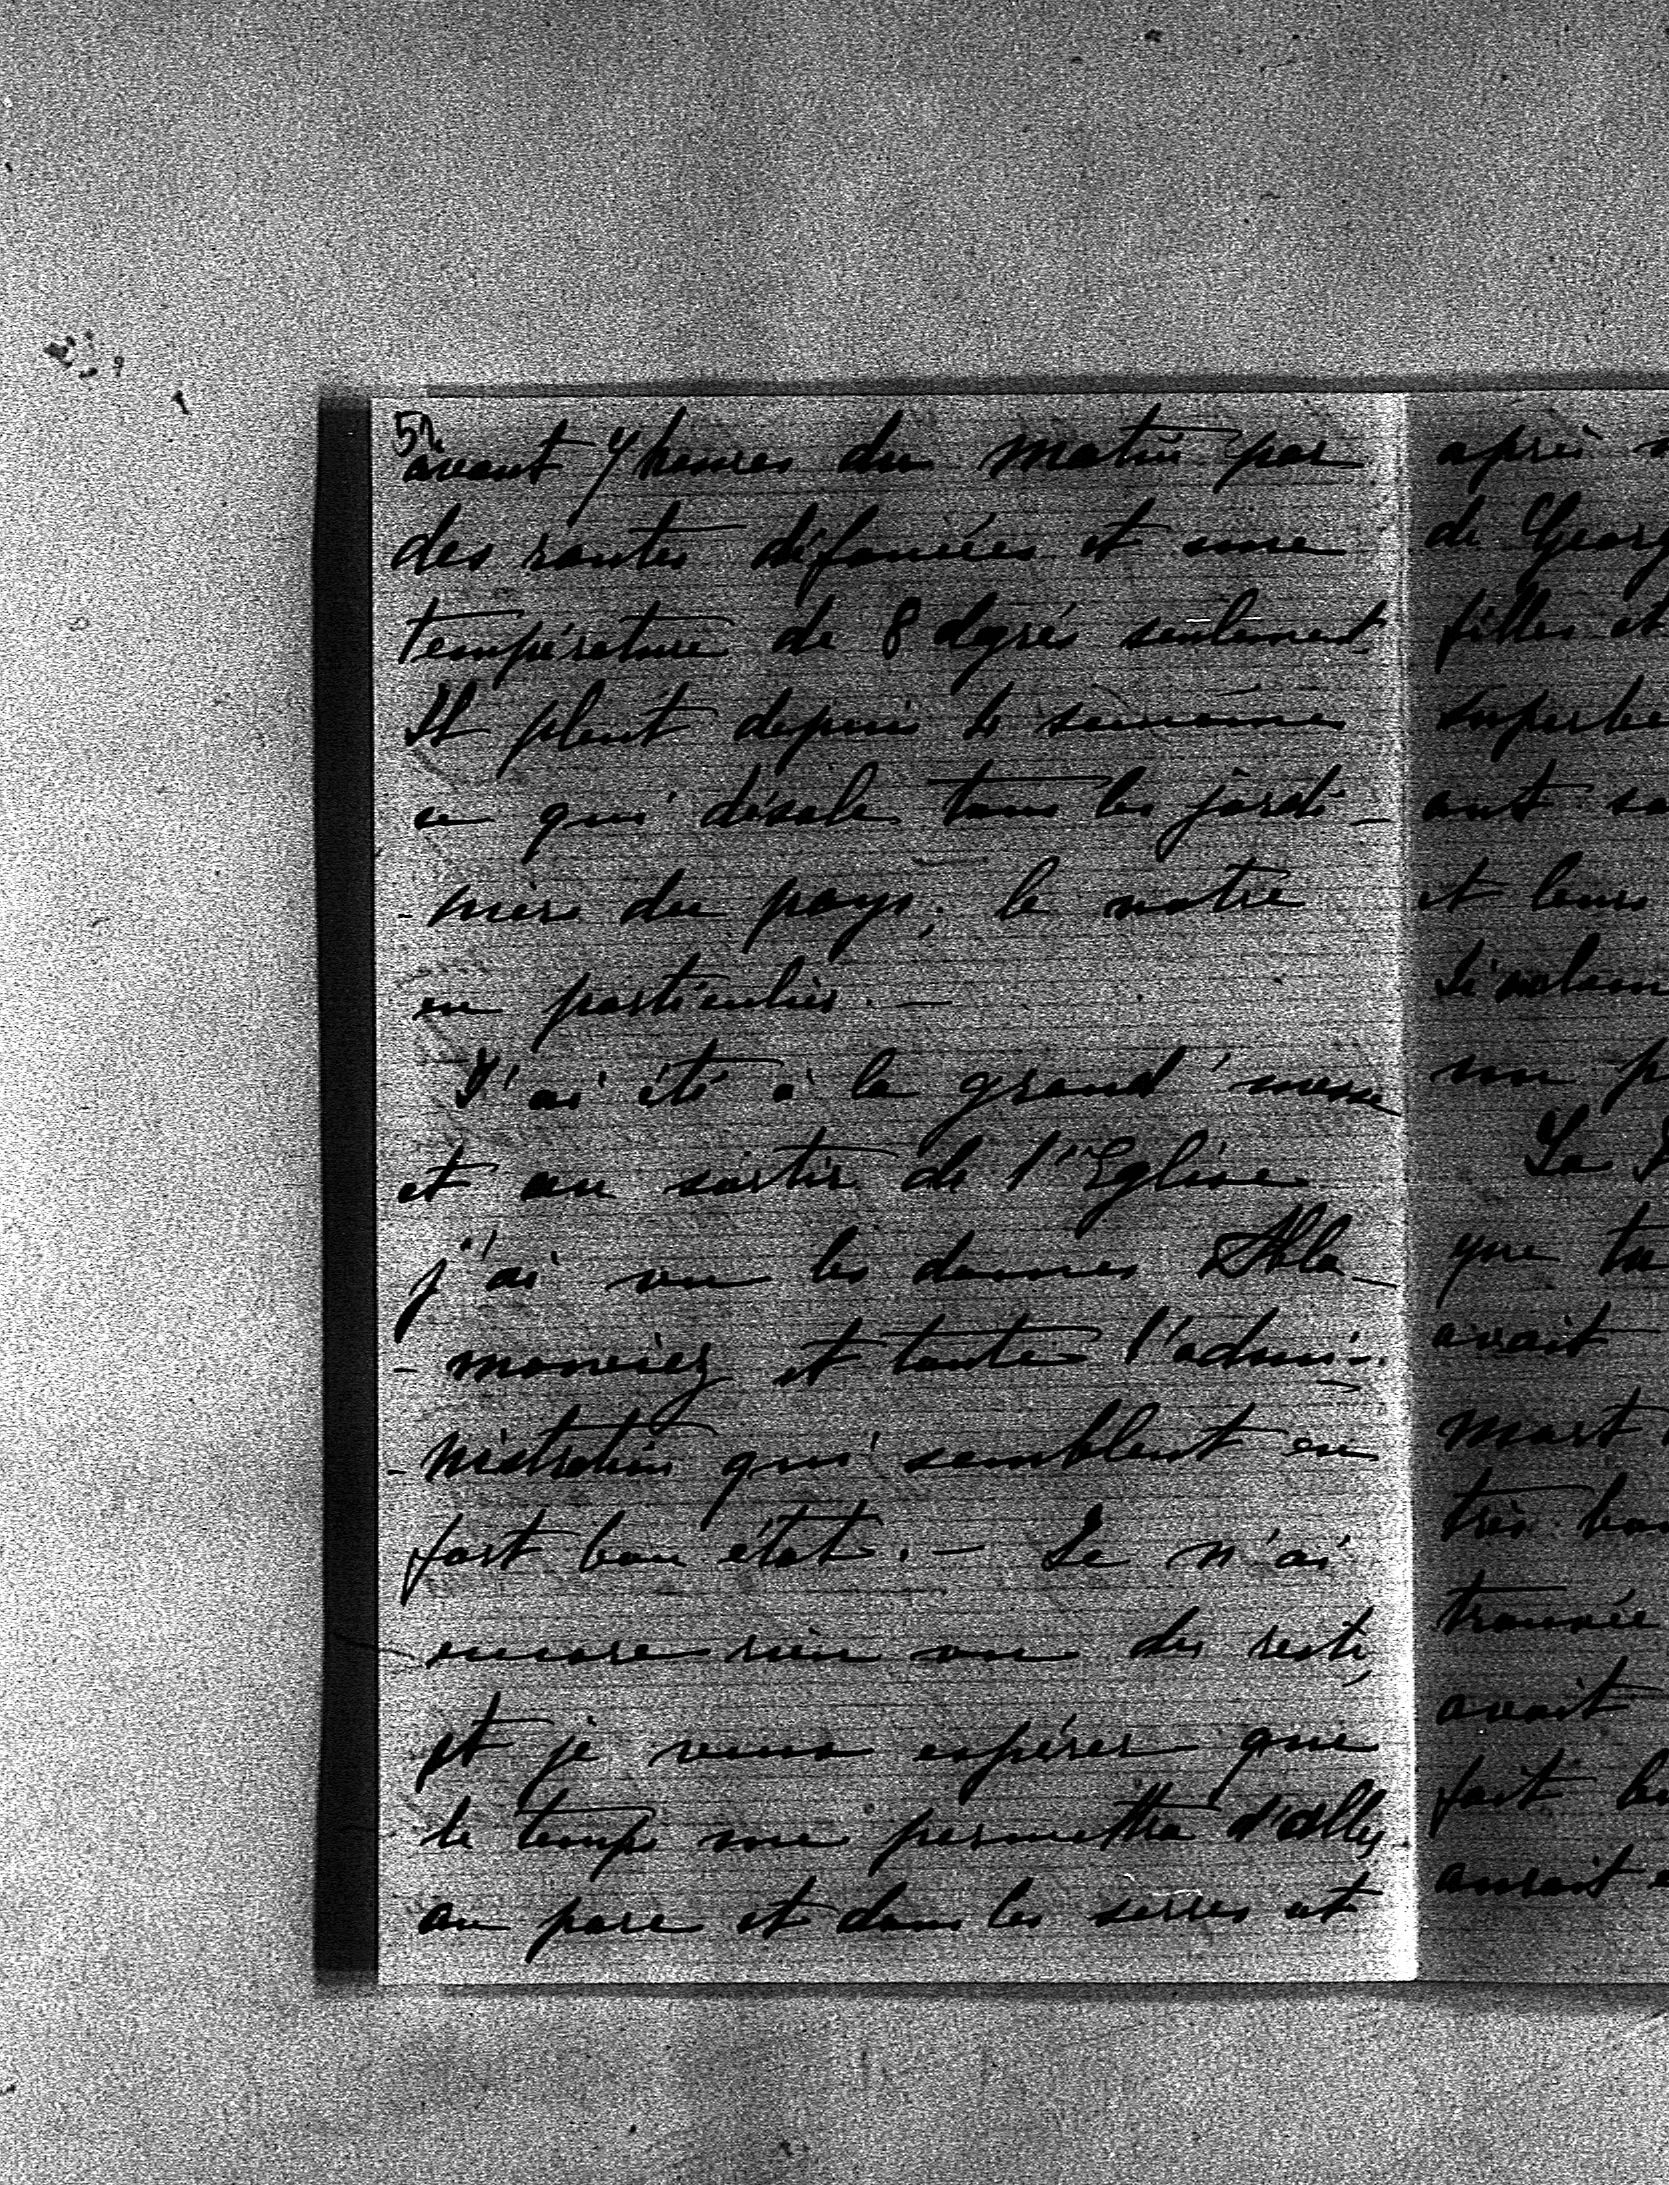 52
avant 7 heures du matin par
des routes défoncées et une
température de 8 degrés seulement.
Il pleut depuis des semaines
ce qui désole tous les jardi-
-niers du pays, le notre
en particulier. -
J'ai été à la grand'messe
et au sortir de l'Eglise
j'ai vu les dames Abla-
-moniez et toute l'admi-
-nistration qui semblent en
fort bon état. - Je n'ai
encore rien vu du reste,
et je veux espérer que
le temps me permettra d'aller
au parc et dans les serres et
après
de Georg
filles et
superbe
ont
et leurs
un
La
que
avait
mort
très
trouvée
avait
fait
aurait